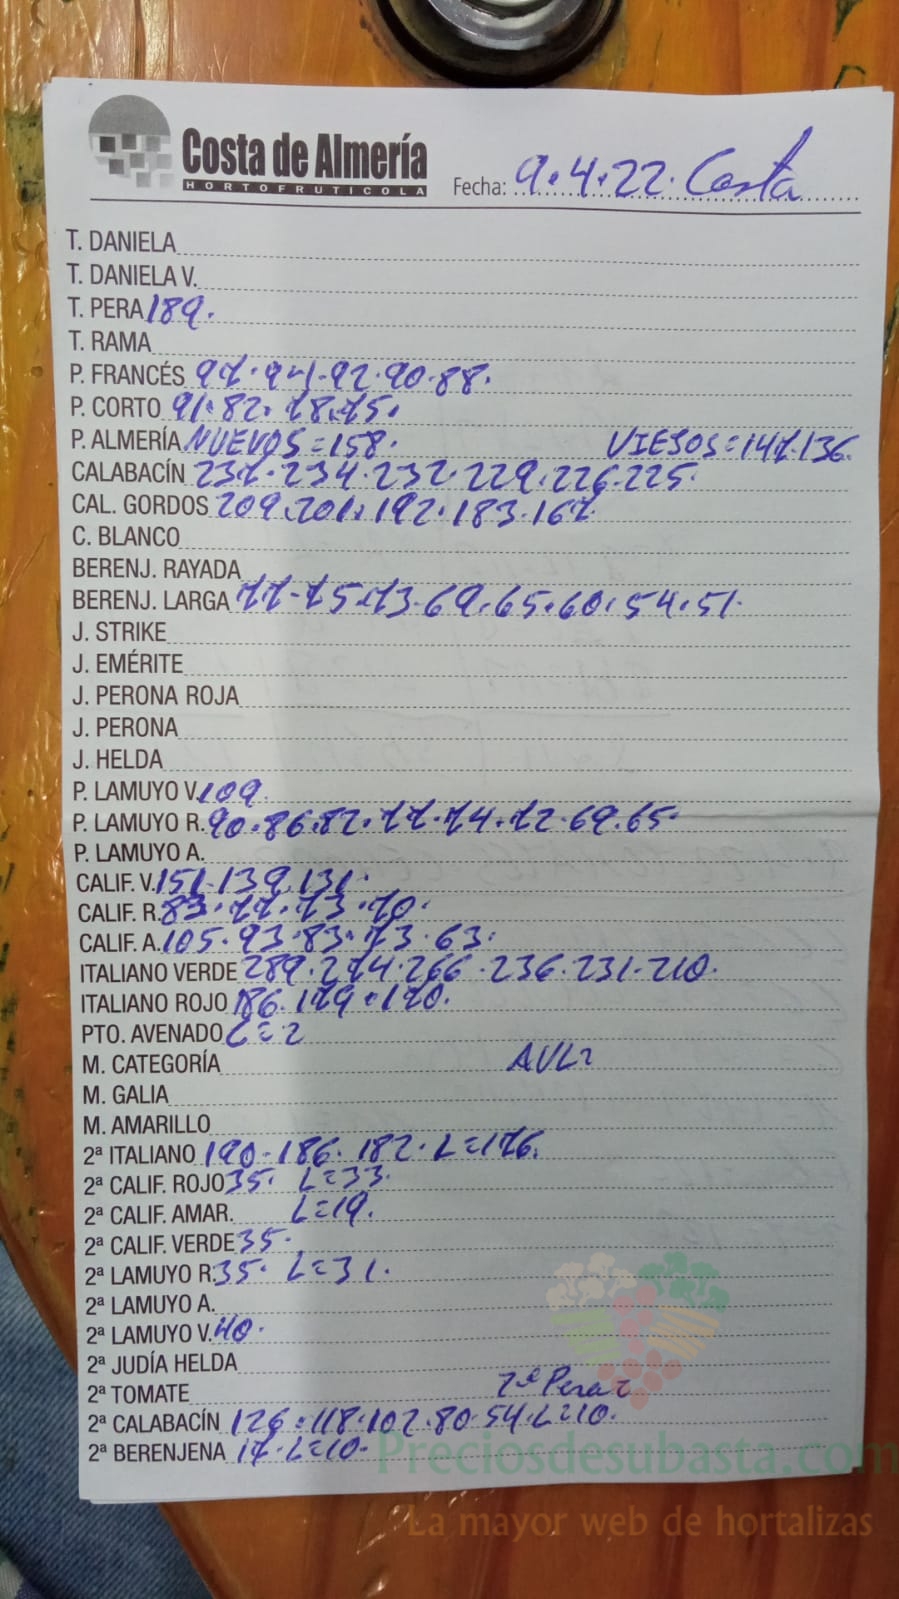 Costa de Almería
HORTOFRUTICOLA
Fecha: 9.4.22. Costa
T. DANIELA
T. DANIELA V.
T. PERA 189.
T. RAMA
P. FRANCÉS 97.94.92.90.88.
P. CORTO 91.82.78.75.
P. ALMERÍA NUEVOS=158. VIESOS=147.136.
CALABACÍN 237.234.232.229.226.225.
CAL. GORDOS 209.201.192.183.167
C. BLANCO
BERENJ. RAYADA
BERENJ. LARGA 77.75.73.69.65.60.54.51.
J. STRIKE
J. EMÉRITE
J. PERONA ROJA
J. PERONA
J. HELDA
P. LAMUYO V. 109.
P. LAMUYO R. 90.86.82.77.74.72.69.65.
P. LAMUYO A.
CALIF. V. 151.139.131.
CALIF. R. 83.77.73.70.
CALIF. A. 105.93.83.73.63.
ITALIANO VERDE 289.274.266.236.231.210.
ITALIANO ROJO 186.179.170.
PTO. AVENADO L=2
M. CATEGORÍA
M. GALIA
M. AMARILLO
2ª ITALIANO 190.186.182.L=176.
2ª CALIF. ROJO 35. L=33.
2ª CALIF. AMAR. L=19.
2ª CALIF. VERDE 35.
2ª LAMUYO R. 35. L=31.
2ª LAMUYO A.
2ª LAMUYO V. 40.
2ª JUDÍA HELDA
2ª TOMATE 2ª Pera
2ª CALABACÍN 126.118.102.80.54.L=10.
2ª BERENJENA 17.L=10.
Preciosdesubasta.com
La mayor web de hortalizas